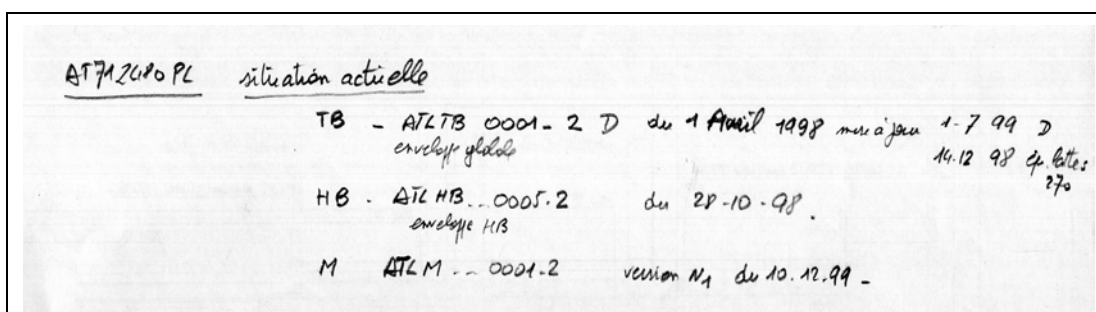 AT712480PL situation actuelle
TB - ATLTB 0001-2 D du 1 Avril 1998 mise à jour 1-7 99 D
enveloppe globale 14.12 98 cp. lettes
270
HB - ATL HB...0005.2 du 28-10-98.
enveloppe HB
M ATL M... 0001.2 version N1 du 10.12.99 -